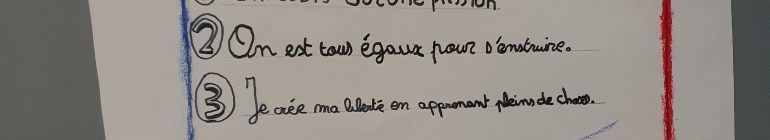 ② On est tous égaux pour s'enstruire.
③ Je crée ma liberté en apprenant pleins de choses.